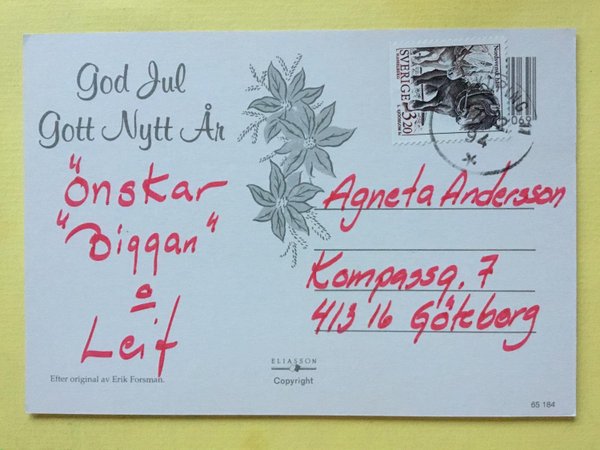 God Jul
Gott Nytt År
Önskar
"Biggan"
o
Leif
Efter original av Erik Forsman.
ELIASSON
Copyright
SVERIGE 3.20
94
Agneta Andersson
Kompassg. 7
413 16 Göteborg
65 184